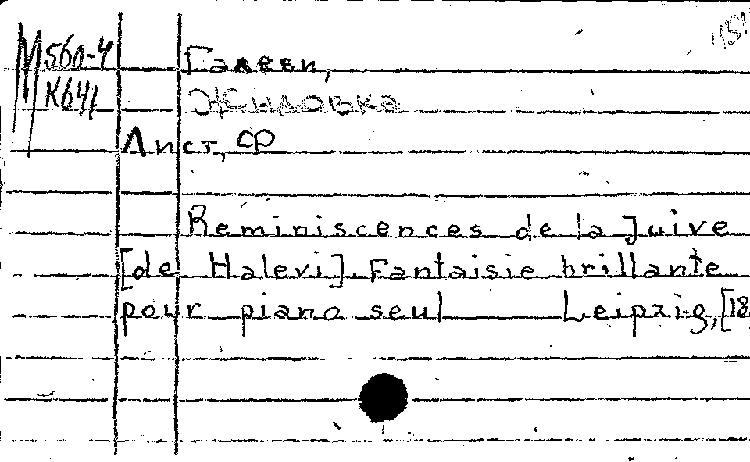 М560-4
К641
Галеви,
Жидовка
Лист, Ф
Reminiscences de la Juive
[de Halevi]. Fantaisie brillante
pour piano seul Leipzig, [18